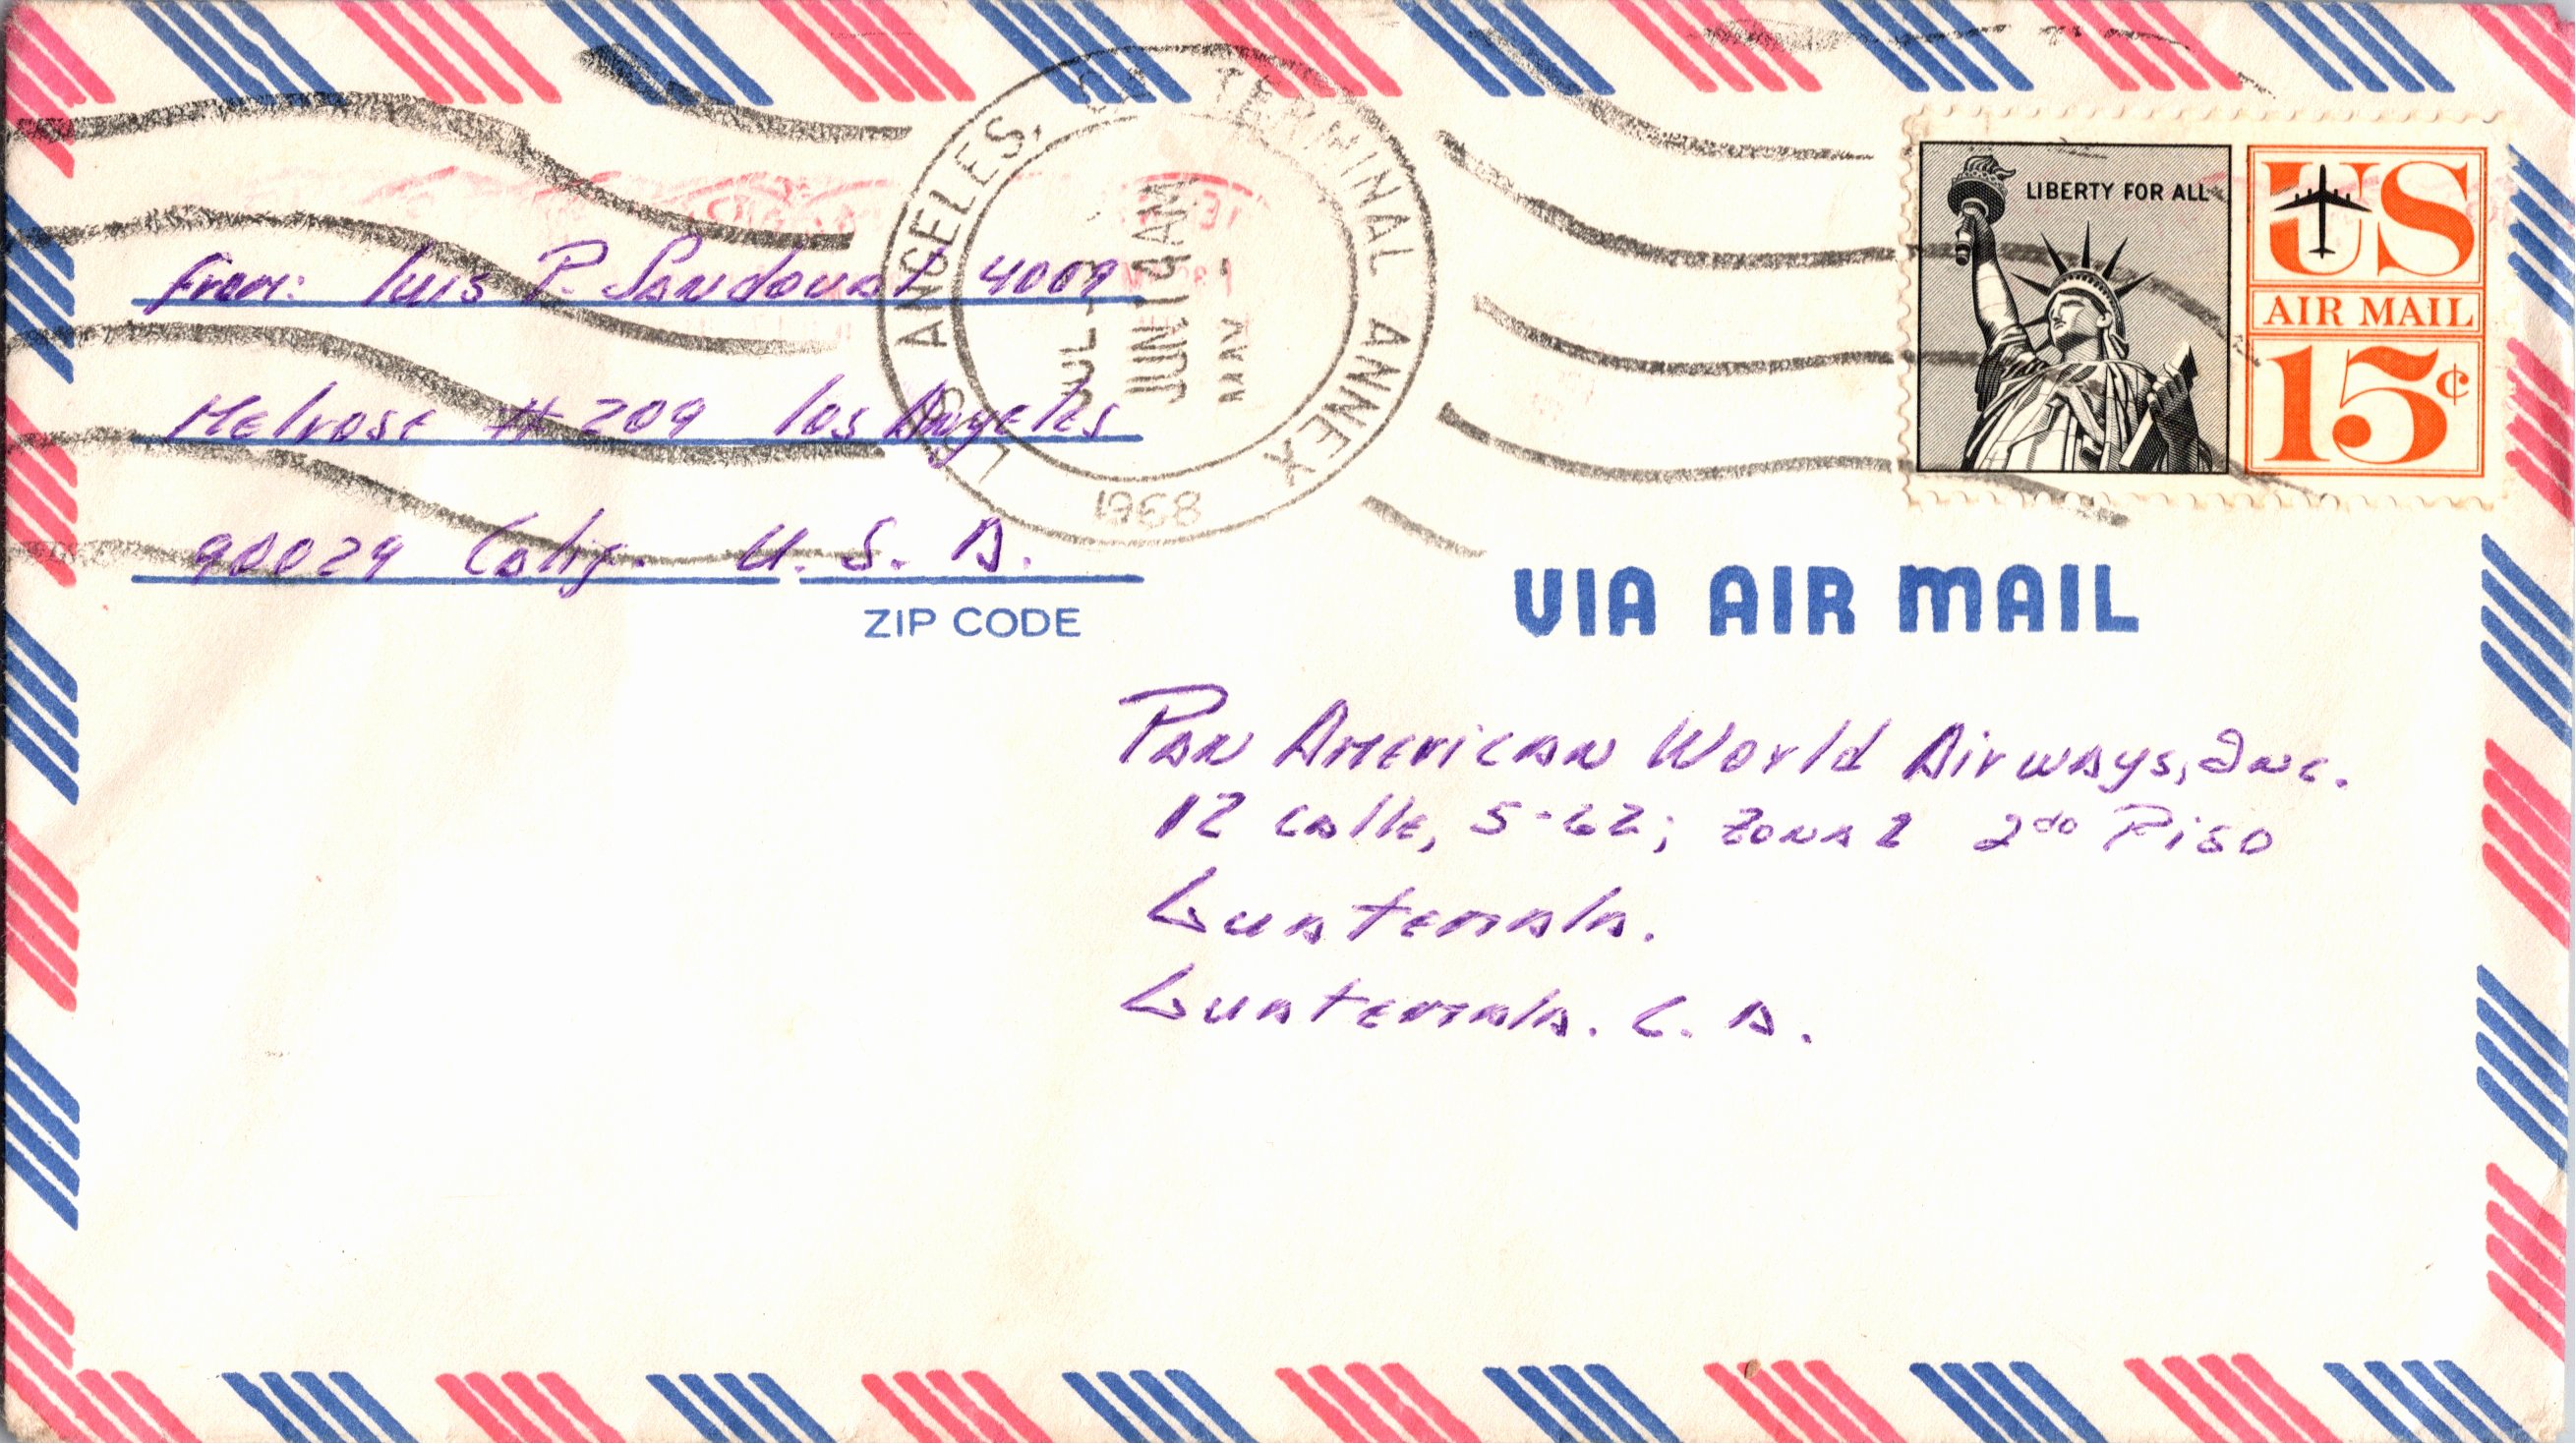 LOS ANGELES, CA TERMINAL ANNEX
JUL -
JUN 14 AM
MAY -
1968
LIBERTY FOR ALL
US
AIR MAIL
15¢
From: Luis P. Sandoval 4009
Melrose # 209 Los Angeles
90029 Calif. U. S. A.
ZIP CODE
VIA AIR MAIL
Pan American World Airways, Inc.
12 Calle, 5-62; Zona 2do Piso
Guatemala.
Guatemala. C. A.